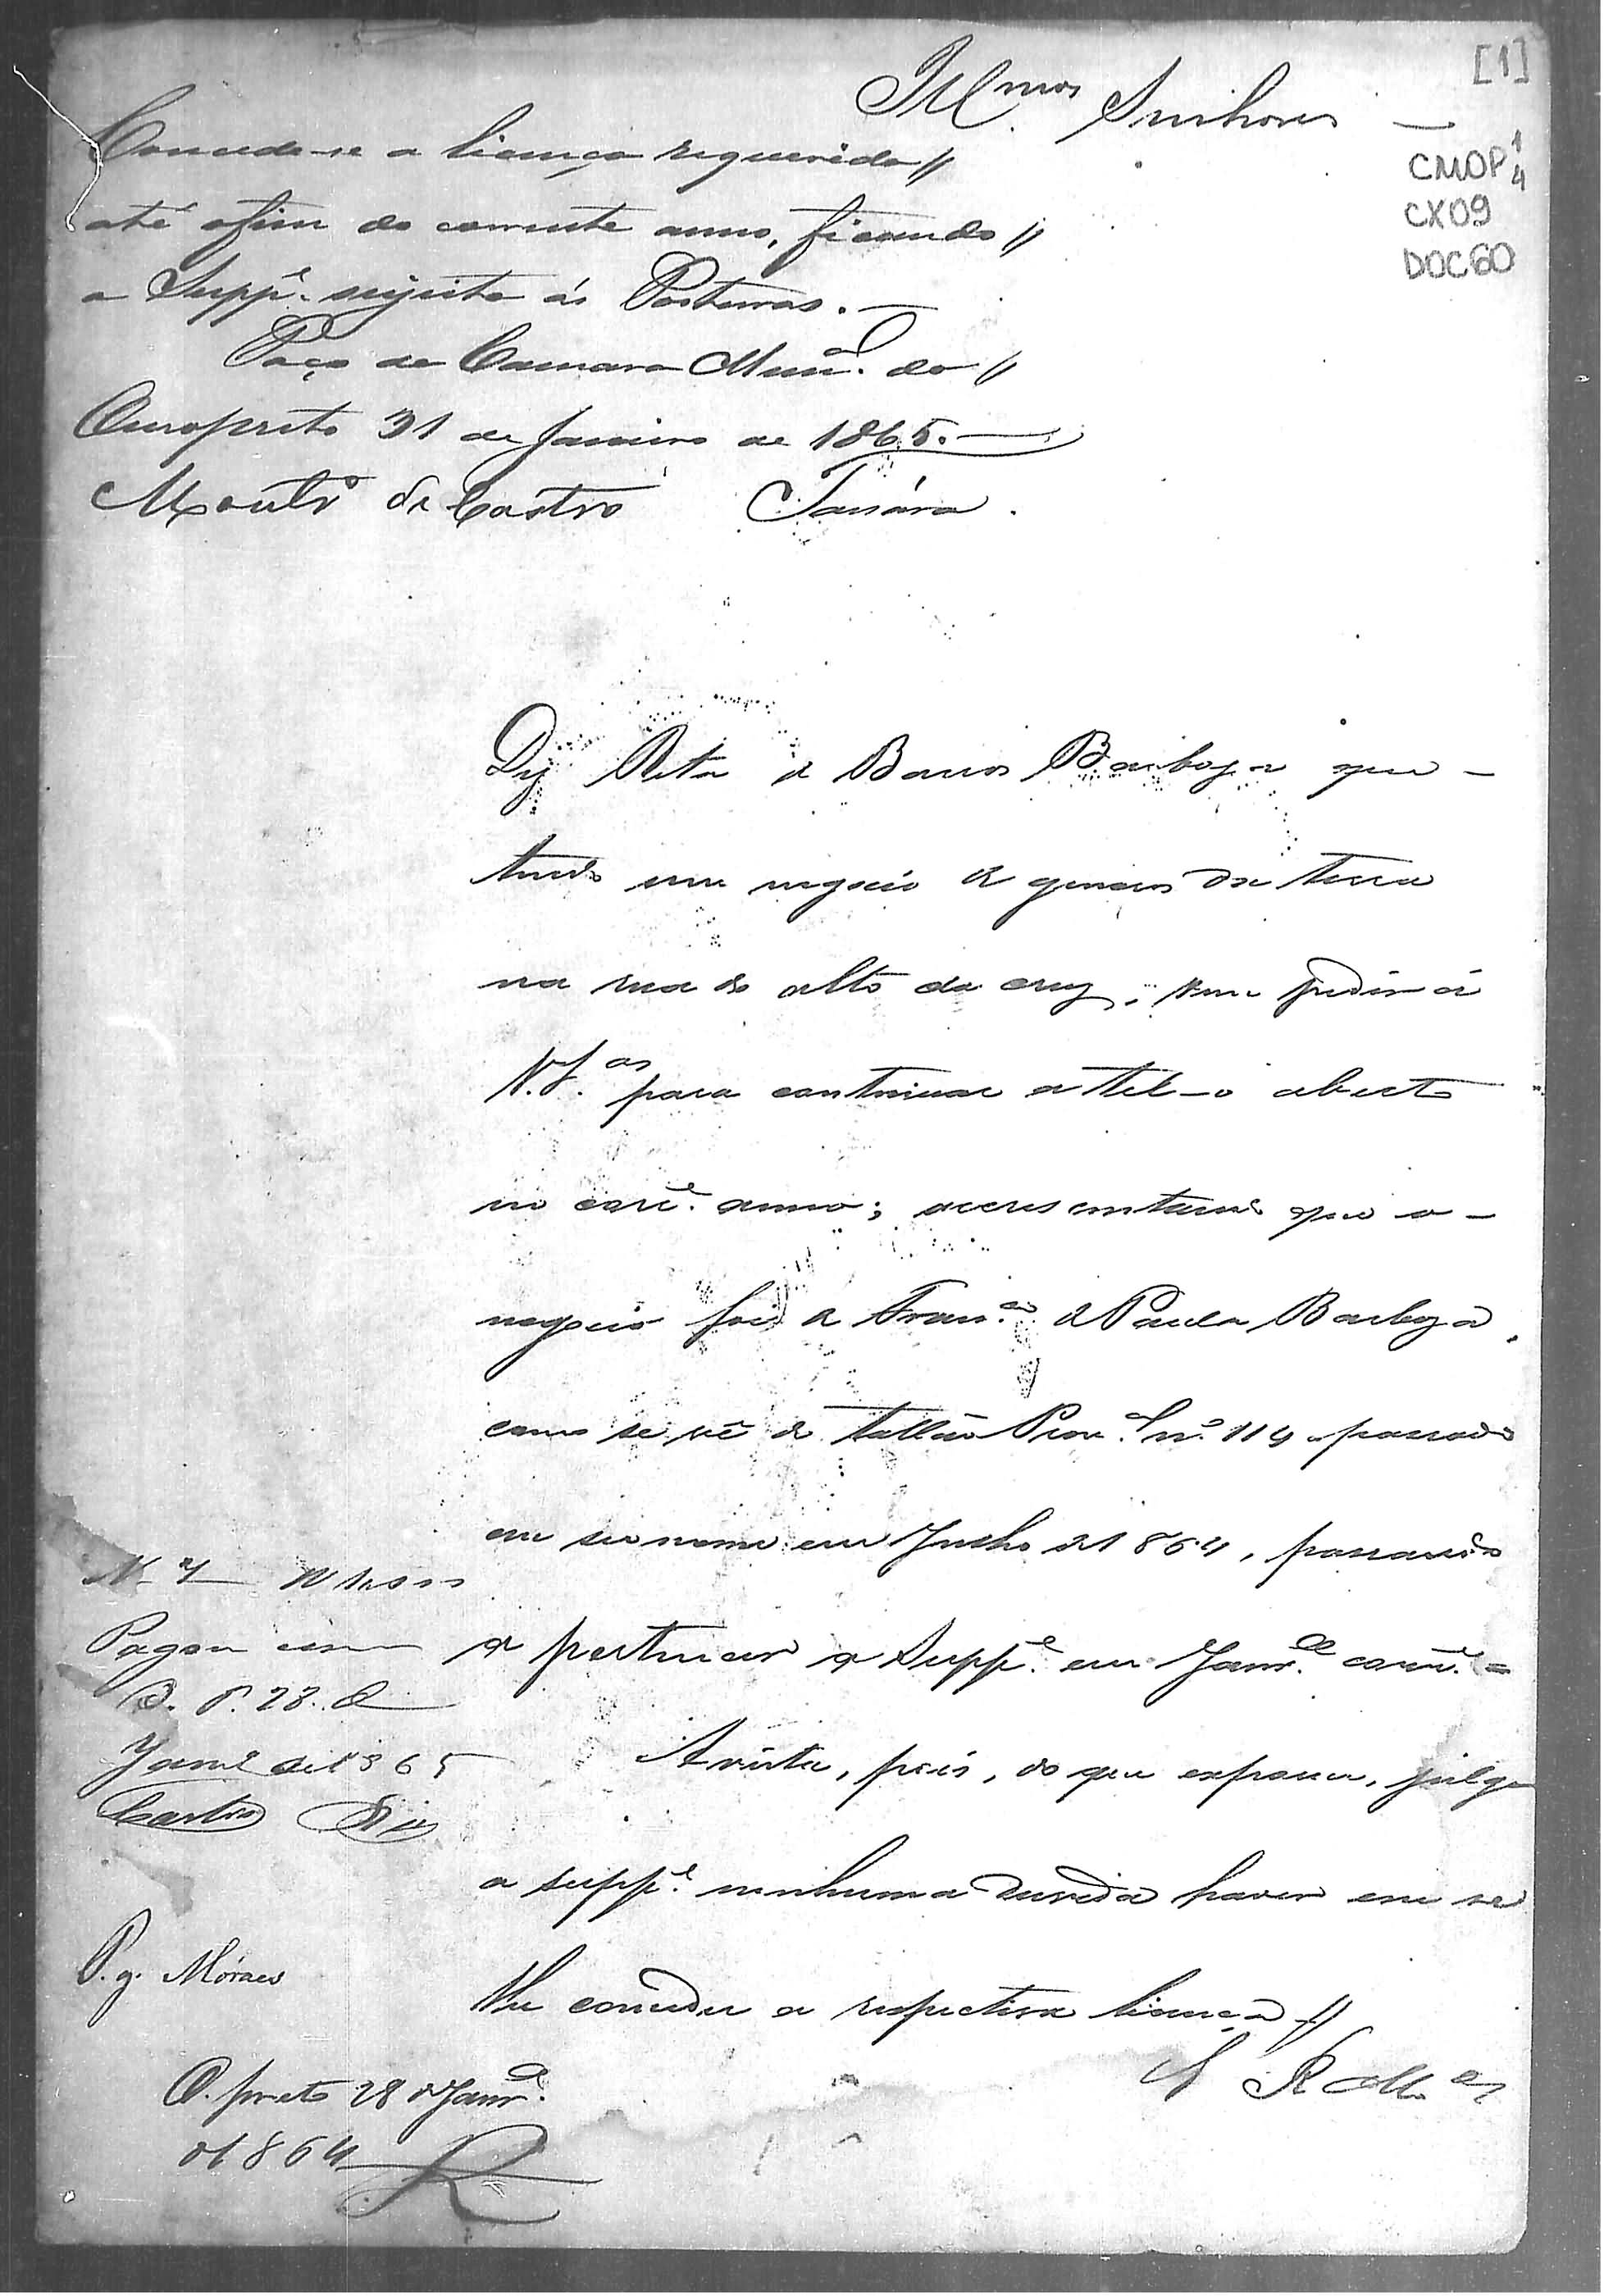 [1]
Ill.mos Senhores
CMOP 1/4
CX09
DOC60
Concede-se a licença requerida
até ofim do corrente anno, ficando
a Supp.e sujeita ás Posturas.
Paço da Camara Mun.al do
Ouropreto 31 de Janeiro de 1865.
Mont.ro de Castro
Diz Rita de Barros Barboza que
tendo um negocio de generos da terra
na rua do alto da cruz, vem pedir á
V.S.as para continuar a tel-o aberto
no corr.e anno; accrescentando que o
negocio foi de Fran.co de Paula Barboza,
como se vê do tallão Prov.al n.o 114 passado
em seu nome em Julho de 1864, passando
a pertencer a Supp.e em Janr.o corr.e
A vista, pois, do que expoem, julga
a supp.e nenhuma duvida haver em se
lhe conceder a respectiva licença
E. R. M.ce
N. 4
Pagou
O. P. 28. de
Janr.o de 1865
Castro
P.g. Móraes
O. preto 28 de Janr.o
de 1864